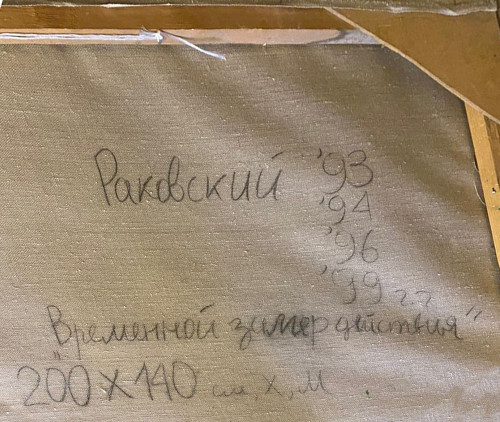 Раковский '93
'94
'96
'99 г.г
„Временной замер действия"
200 х 140 см, х, м